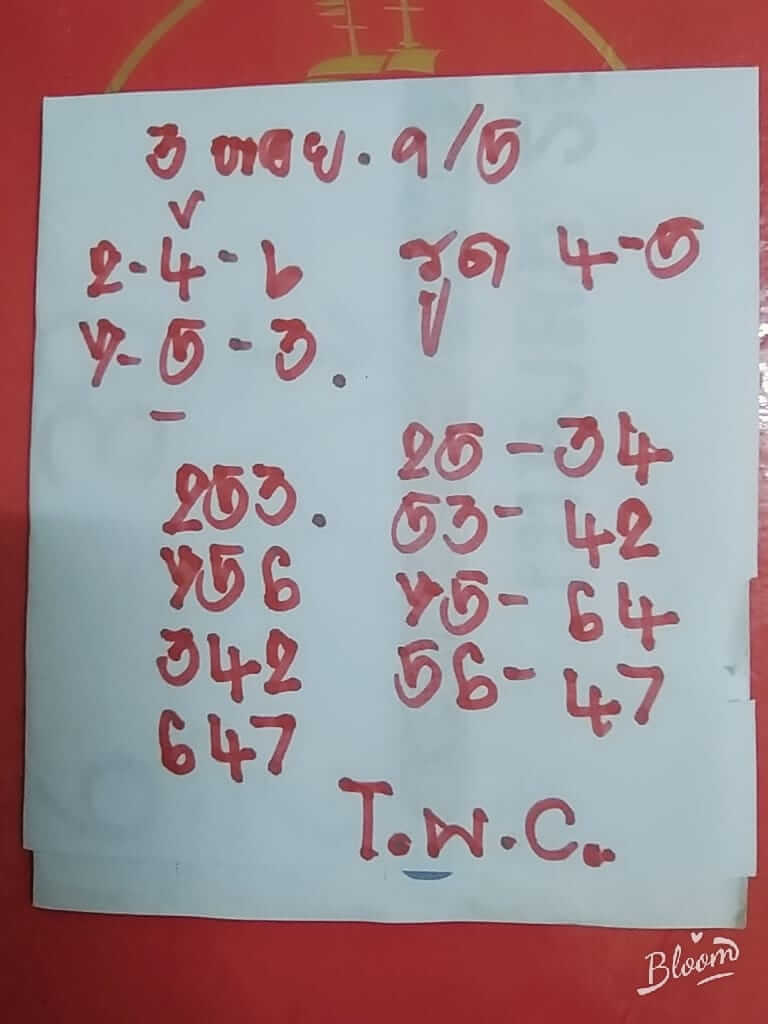 3 . 9/5
v
2-4-6 รูด 4-5
7-5-3.
253. 25-34
756 53-42
342 75-64
647 56-47
T.W.C.
Bloom